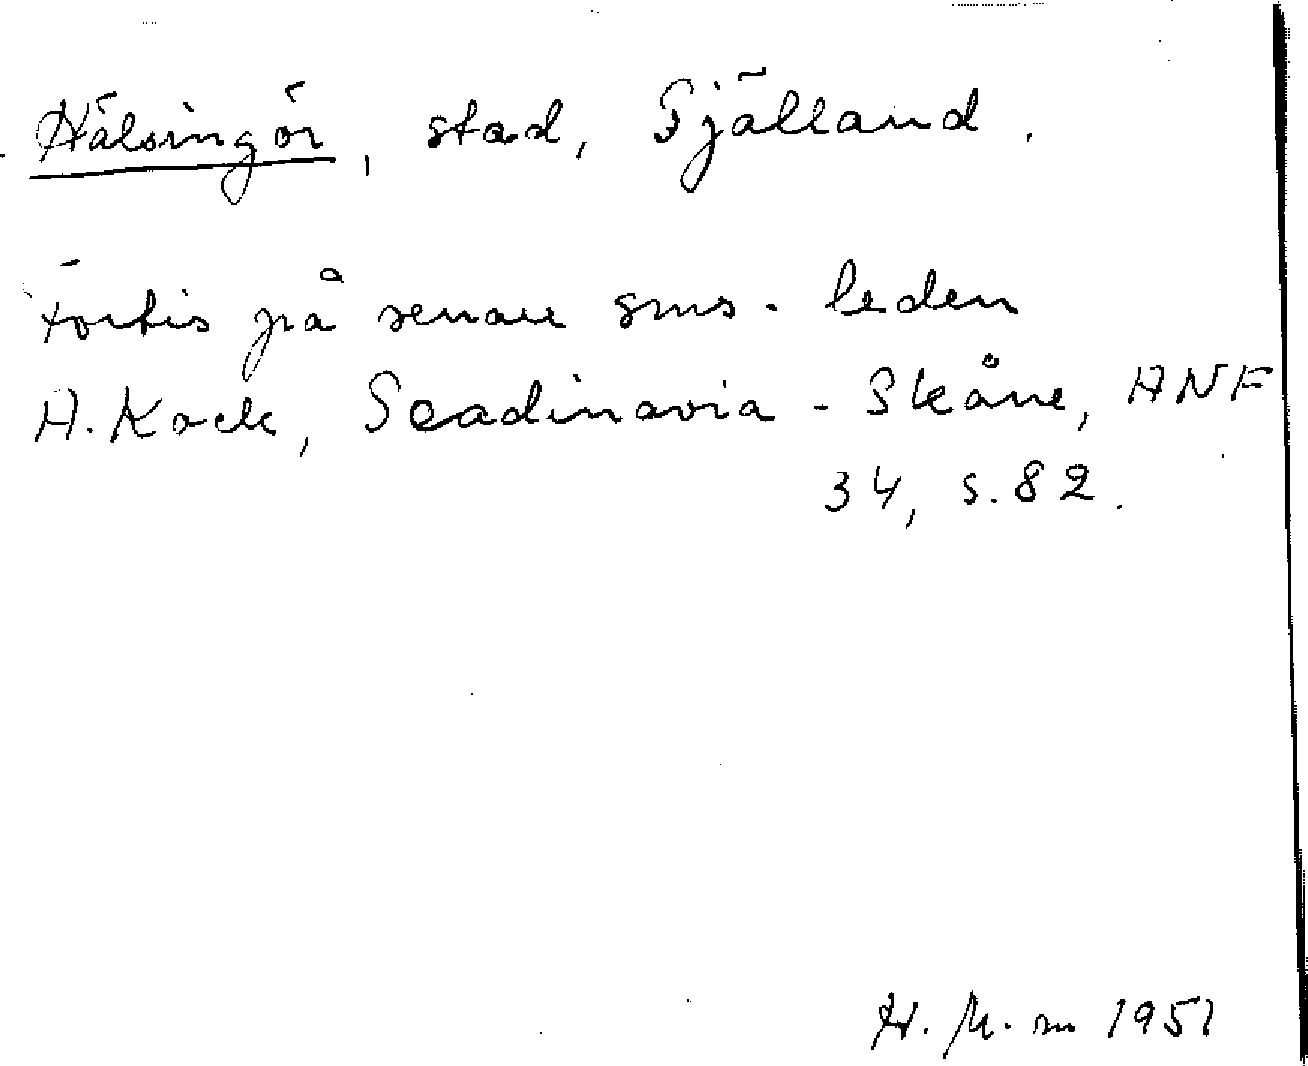 Hälsingör, stad, Själland.
Fortis på senare sms. leden
A. Kock, Scadinavia - Skåne, ANF
34, s. 82.
H. M. m 1951